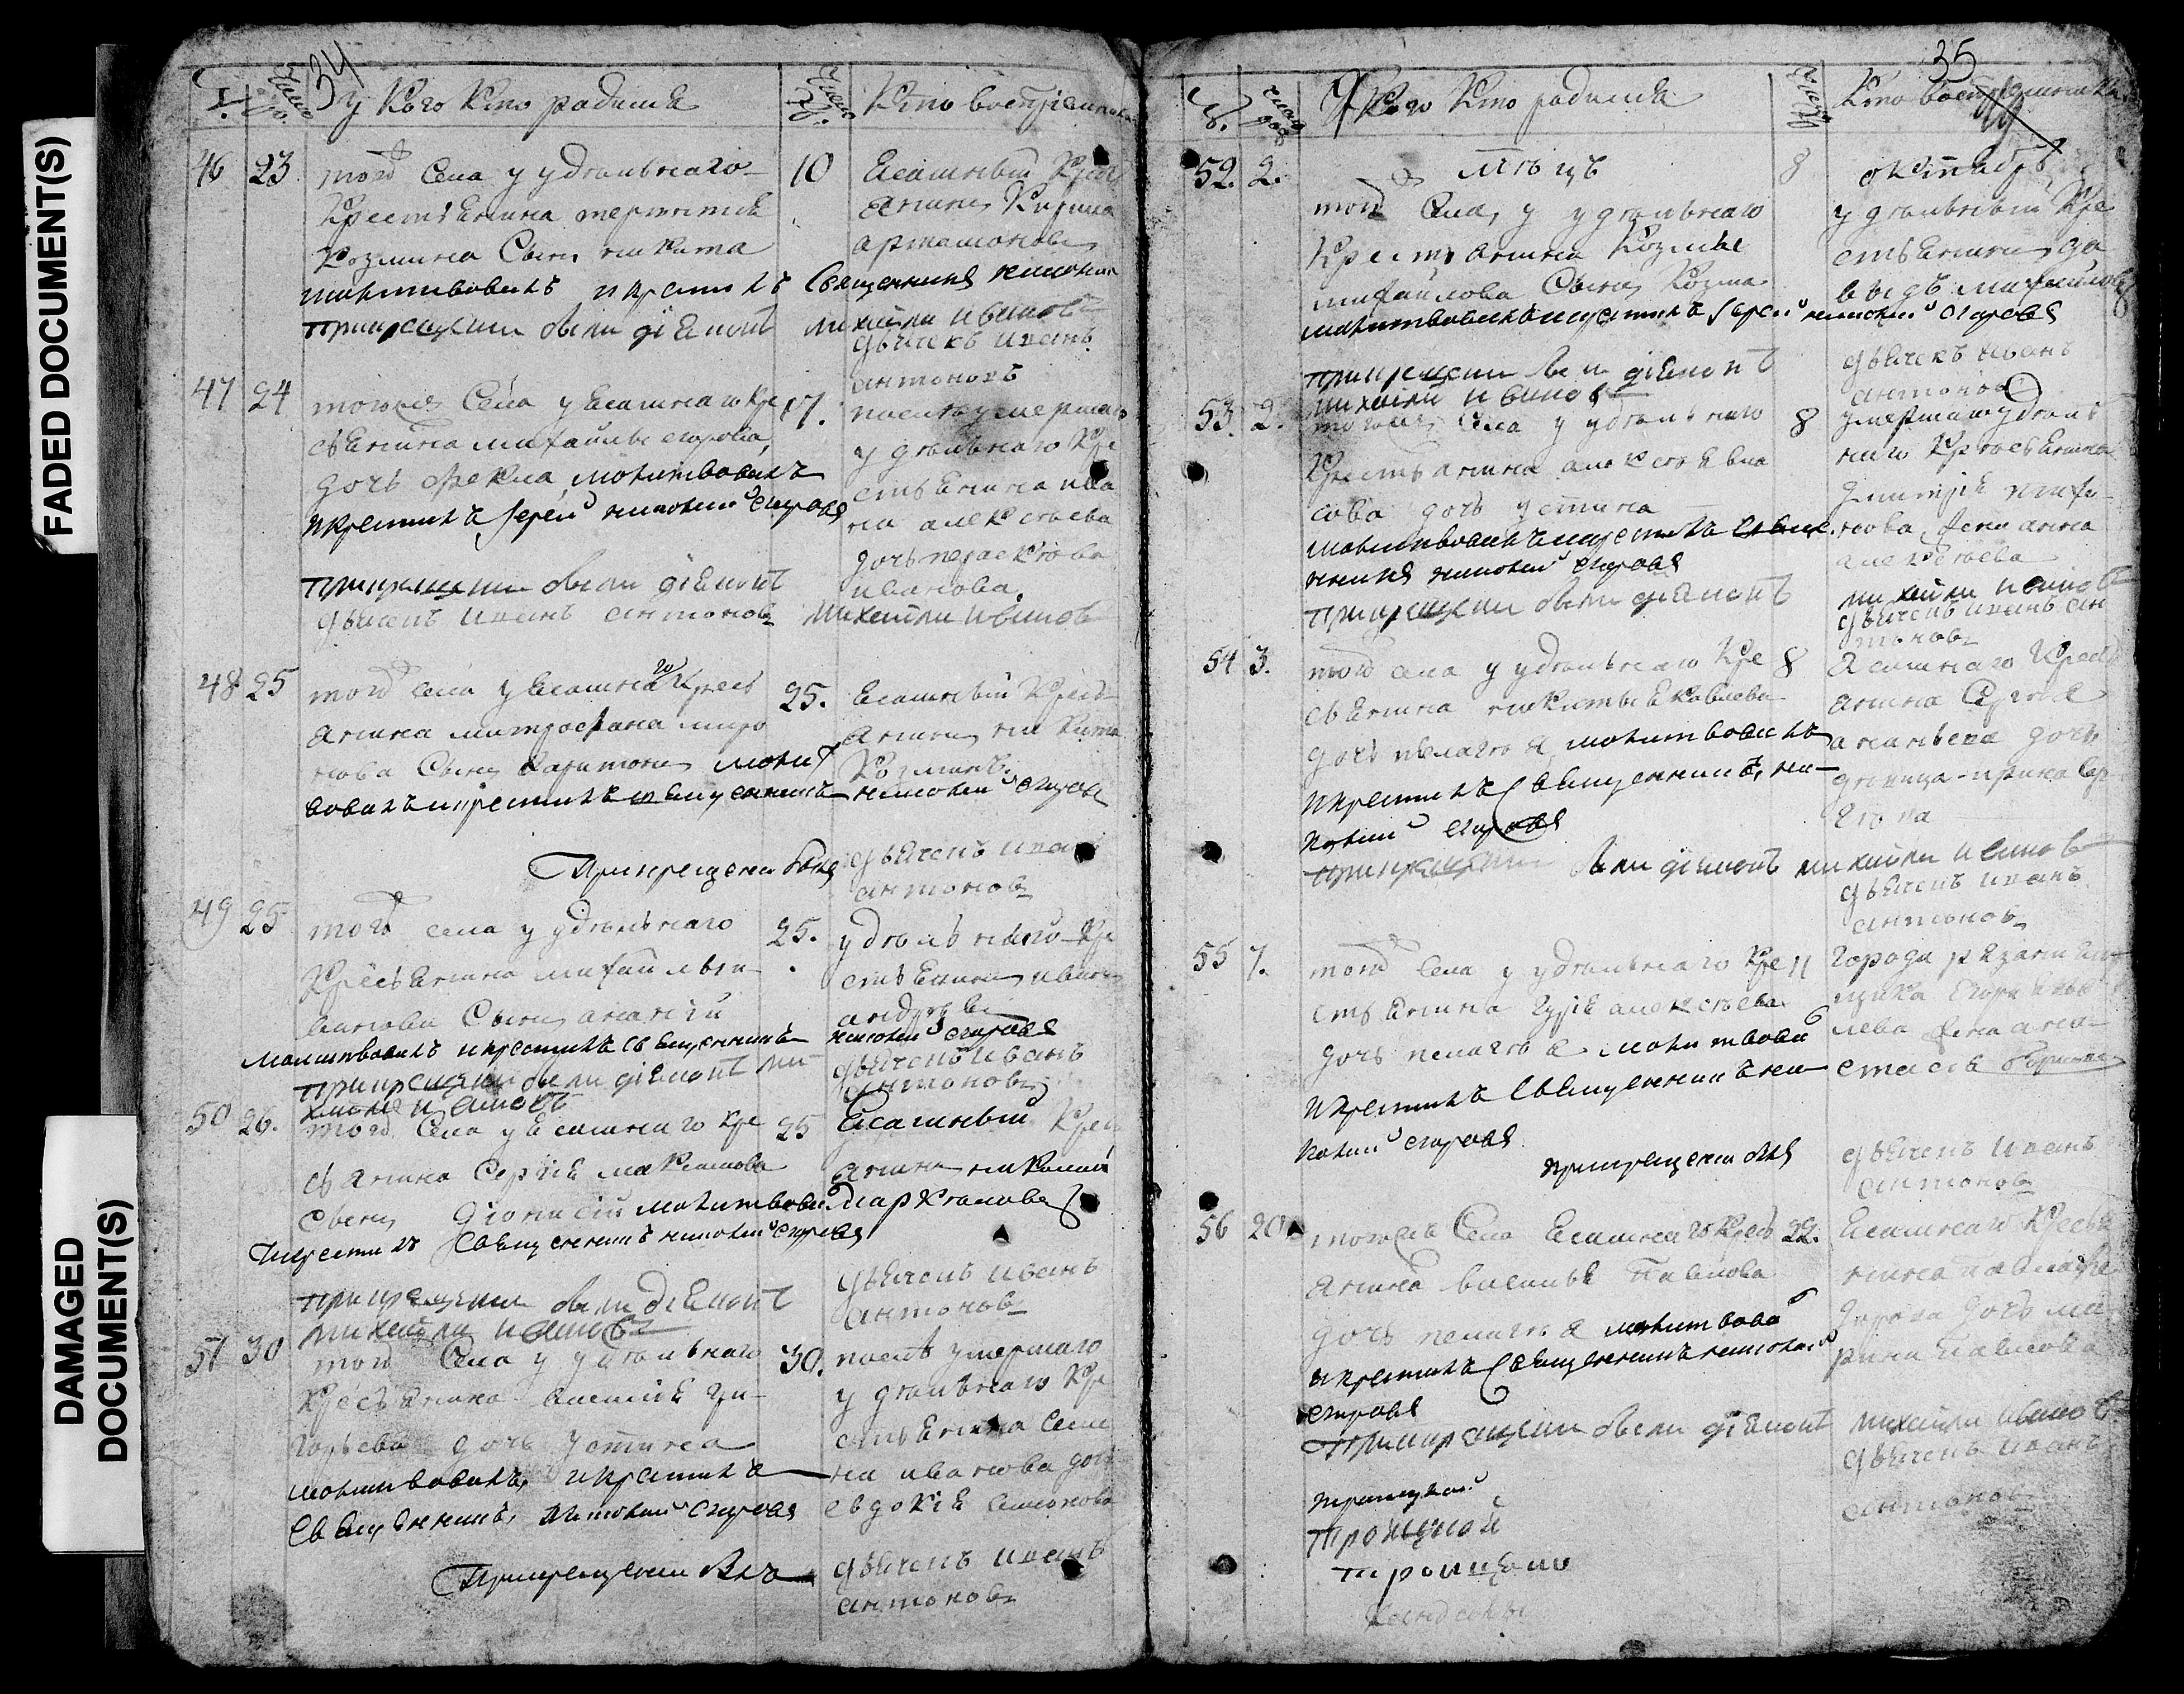 FADED DOCUMENT(S)
DAMAGED
DOCUMENT(S)
34
У кого кто родился
Кто восприемники
46 23 тогож села у удельнаго
крестьянина терентия
козмина сынъ никита
молитвовалъ и крестилъ священникъ
при крещении были дьяконъ михаила иванов
10 ясашный крес
янинъ Кирила
артамонов
дьячекъ иванъ
антоновъ
47 24 тогожъ села у ясашнаго кре
стьянина михайлы егорова
дочь фекла молитвовалъ
и крестилъ иерей николай егоровъ
при крещении были дьяконъ
дьячекъ иванъ антонов михаила иванов
17. после умершаго
удельнаго кре
стьянина ива
на алексеева
дочь параскова
иванова
48 25 тогож села у ясашнаго кресь
янина митрофана миро
нова сынъ харитонъ молит
вовалъ и крестилъ священникъ николай егоров
При крещении былъ
25. ясашный кресь
янинъ никита
козминъ
дьячекъ иванъ
антонов
49 25 тогож села у удельнаго
кресьянина михайлы
иванова сынъ ананий
молитвовалъ и крестилъ священникъ николай егоровъ
при крещении были дьяконъ ми
хаила иванов
25. удельнаго кре
стьянинъ иванъ
андреев
дьячекъ иванъ
антонов
50 26. тогож села у ясашнаго кре
сьянина Сергия максимова
сынъ Дионисий молитвовал
и крестил священникъ николай егоровъ
при крещении были дьяконъ
михаила иванов
25 Ясашный кресь
янинъ николай
дьячекъ иванъ
антонов
51 30 тогож села у удельнаго
кресьянина василия гри
горьева дочь устинья
молитвовалъ и крестилъ
священникъ николай егоровъ
При крещении былъ
30. после умершаго
удельнаго кре
стьянина семе
на иванова доч
евдокия семионова
дьячекъ иванъ
антонов
35
У кого кто родился
Кто восприемники
мцъ октябрь
52. 2. тогож села у удельнаго
крестьянина козмы
михайлова сынъ козма
молитвовалъ и крестилъ иерей николай егоровъ
при крещении были дьяконъ
михаила иванов
8 удельный кре
стьянинъ да
выдъ михайлов
дьячекъ иванъ
антонов
53. 2. тогожъ села у удельнаго
крестьянина алексея вла
сова дочь устина
молитвовалъ и крестилъ свяще
нникъ николай егоровъ
при крещении были дьяконъ
8 умершаго удель
наго кресьянина
димитрия
жена анна
алексеева
михаила иванов
дьячекъ иванъ ан
тонов
54 3. тогож села у удельнаго кре
сьянина никиты яковлева
дочь пелагея молитвовалъ
и крестилъ священникъ ни
колай егоровъ
при крещении были дьяконъ михаила иванов
8 ясашнаго кресь
янина Сергея
ананьева дочь
девица ирина сер
геева
дьячекъ иванъ
антонов
55 7. тогож села у удельнаго кре
стьянина гурия алексеева
дочь пелагея молитвовал
и крестилъ священникъ ни
колай егоровъ
при крещении былъ
11 города рязани
щика егора
лева жена ана
стасия
дьячекъ иванъ
антонов
56 20 тогожъ села ясашнаго кресь
янина василья павлова
дочь пелагея молитвовал
и крестилъ священникъ николай
егоровъ
при крещении были дьяконъ михаила иванов
22. ясашнаго кресья
нина павла фе
дорова дочь ма
рина павлова
дьячекъ иванъ
антонов
троицкой
троицкой
троицкаго